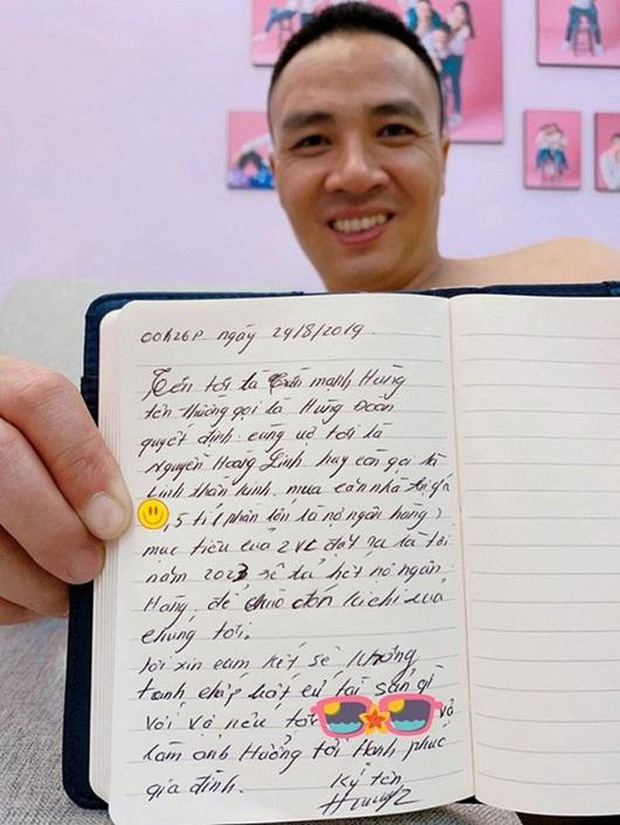 00h26p ngày 29/8/2019.
Tên tôi là Trần mạnh Hùng
tên thường gọi là Hùng Đoàn
quyết định cùng vợ tôi là
Nguyễn Hoàng Linh hay còn gọi là
Linh thần kinh. mua căn nhà trị giá
,5 tỉ ( phần lớn là nợ ngân hàng )
mục tiêu của 2 VC đặt ra là tới
năm 2023 sẽ trả hết nợ ngân
Hàng, để chào đón Kichi của
chúng tôi.
tôi xin cam kết sẽ không
tranh chấp bất cứ tài sản gì
với vợ nếu tôi và
làm ảnh Hưởng tới Hạnh phúc
gia đình.
Ký tên